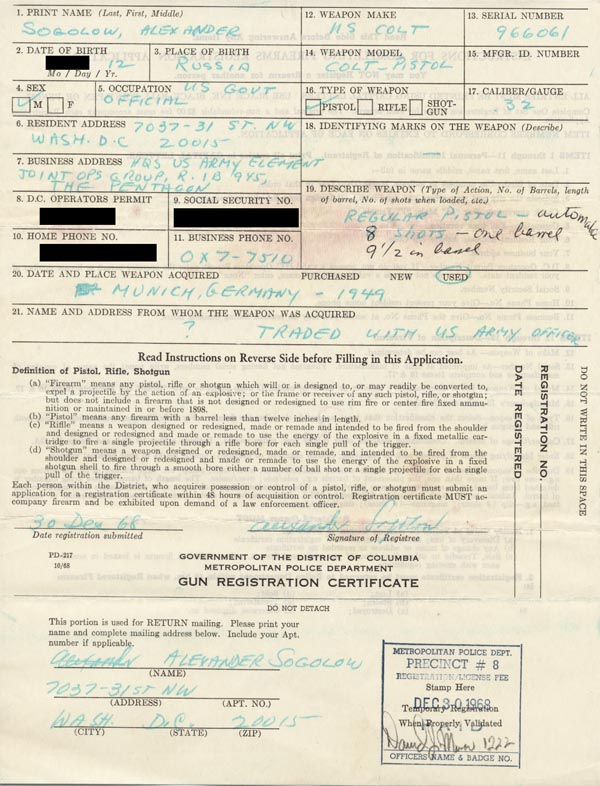 1. PRINT NAME (Last, First, Middle)
SOGOLOW, ALEXANDER
12. WEAPON MAKE
US COLT
13. SERIAL NUMBER
966061
2. DATE OF BIRTH
12
Mo / Day / Yr.
3. PLACE OF BIRTH
RUSSIA
14. WEAPON MODEL
COLT-PISTOL
15. MFGR. ID. NUMBER
4. SEX
M F
5. OCCUPATION US GOVT
OFFICIAL
16. TYPE OF WEAPON
PISTOL RIFLE SHOT-
GUN
17. CALIBER/GAUGE
.32
6. RESIDENT ADDRESS 7037-31 ST. NW
WASH. D.C 20015
18. IDENTIFYING MARKS ON THE WEAPON (Describe)
—
7. BUSINESS ADDRESS HQS US ARMY ELEMENT
JOINT OPS GROUP, R. 1B 945,
THE PENTAGON
8. D.C. OPERATORS PERMIT
9. SOCIAL SECURITY NO.
19. DESCRIBE WEAPON (Type of Action, No. of Barrels, length
of barrel, No. of shots when loaded, etc.)
REGULAR PISTOL — automatic
8 SHOTS — one barrel
9 1/2 in barrel
10. HOME PHONE NO.
11. BUSINESS PHONE NO.
OX7-7510
20. DATE AND PLACE WEAPON ACQUIRED PURCHASED NEW USED
MUNICH, GERMANY - 1949
21. NAME AND ADDRESS FROM WHOM THE WEAPON WAS ACQUIRED
? TRADED WITH US ARMY OFFICER
Read Instructions on Reverse Side before Filling in this Application.
Definition of Pistol, Rifle, Shotgun
(a) "Firearm" means any pistol, rifle or shotgun which will or is designed to, or may readily be converted to,
expel a projectile by the action of an explosive; or the frame or receiver of any such pistol, rifle, or shotgun;
but does not include a firearm that is not designed or redesigned to use rim fire or center fired fixed ammu-
nition or maintained in or before 1898.
(b) "Pistol" means any firearm with a barrel less than twelve inches in length.
(c) "Rifle" means a weapon designed or redesigned, made or remade and intended to be fired from the shoulder
and designed or redesigned and made or remade to use the energy of the explosive in a fixed metallic car-
tridge to fire a single projectile through a rifle bore for each single pull of the trigger.
(d) "Shotgun" means a weapon designed or redesigned, made or remade, and intended to be fired from the
shoulder and designed or redesigned and made or remade to use the energy of the explosive in a fixed
shotgun shell to fire through a smooth bore either a number of ball shot or a single projectile for each single
pull of the trigger.
Each person within the District, who acquires possession or control of a pistol, rifle, or shotgun must submit an
application for a registration certificate within 48 hours of acquisition or control. Registration certificate MUST ac-
company firearm and be exhibited upon demand of a law enforcement officer.
DATE REGISTERED
REGISTRATION NO.
DO NOT WRITE IN THIS SPACE
30 Dec 68
Date registration submitted
Alexander Sogolow
Signature of Registree
PD-217
10/68
GOVERNMENT OF THE DISTRICT OF COLUMBIA
METROPOLITAN POLICE DEPARTMENT
GUN REGISTRATION CERTIFICATE
DO NOT DETACH
This portion is used for RETURN mailing. Please print your
name and complete mailing address below. Include your Apt.
number if applicable.
ALEXANDER SOGOLOW
(NAME)
7037-31st NW
(ADDRESS) (APT. NO.)
WASH. D.C. 20015
(CITY) (STATE) (ZIP)
METROPOLITAN POLICE DEPT.
PRECINCT # 8
REGISTRATION/LICENSE FEE
Stamp Here
DEC 30 1968
Temporary Registration
When Properly Validated
PAID
1222
OFFICERS NAME & BADGE NO.